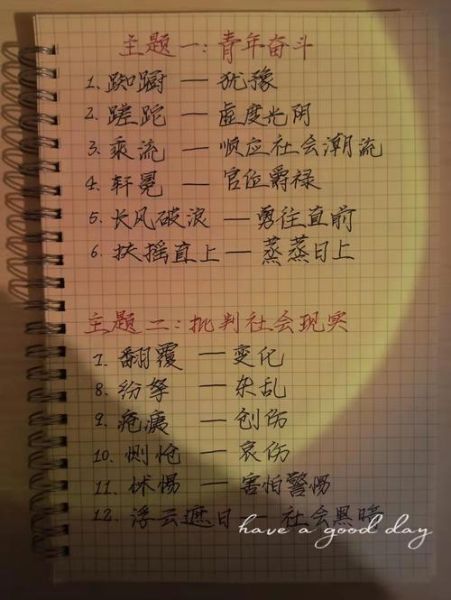 主题一：青年奋斗
1. 踟蹰 — 犹豫
2. 蹉跎 — 虚度光阴
3. 乘流 — 顺应社会潮流
4. 轩冕 — 官位爵禄
5. 长风破浪 — 勇往直前
6. 扶摇直上 — 蒸蒸日上
主题二：批判社会现实
7. 翻覆 — 变化
8. 纷拏 — 杂乱
9. 疮痍 — 创伤
10. 恻怆 — 哀伤
11. 怵惕 — 害怕警惕
12. 浮云遮日 — 社会黑暗
have a good day